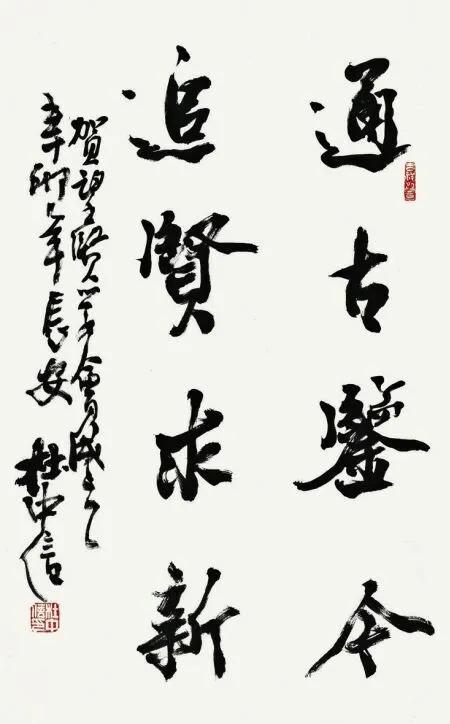 通古鑒今
追賢求新
賀賢學會成立
辛卯年長安 杜中信